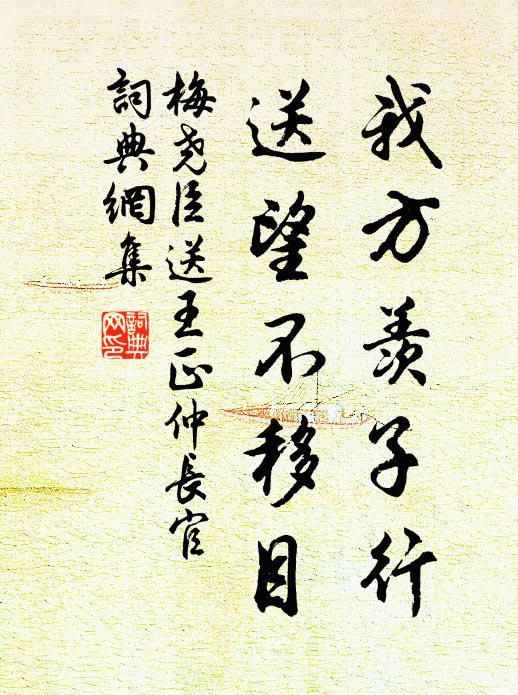 我方羨子行
送望不移目
梅堯臣送王正仲長官
詞典網集
詞典網印